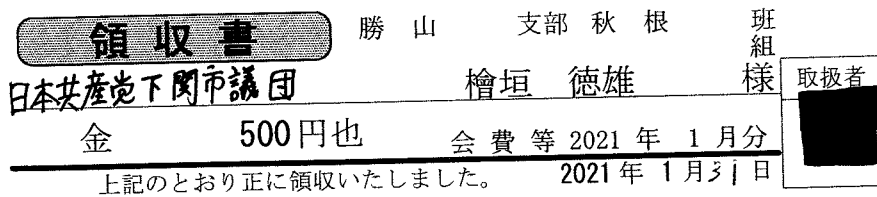 領収書 勝山 支部 秋根 班
組
日本共産党下関市議団 檜垣 徳雄 様 取扱者
金 500円也 会費等 2021年 1月分
上記のとおり正に領収いたしました。 2021年 1月31日